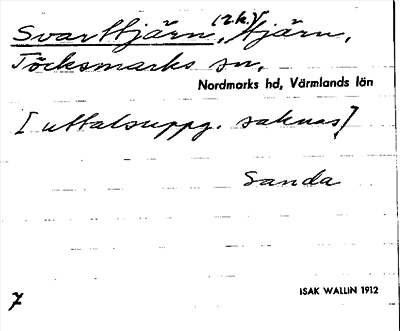 Svarttjärn, (2k.) tjärn,
Töcksmarks sn,
Nordmarks hd, Värmlands län
[uttalsuppg. saknas]
Sanda
7
ISAK WALLIN 1912